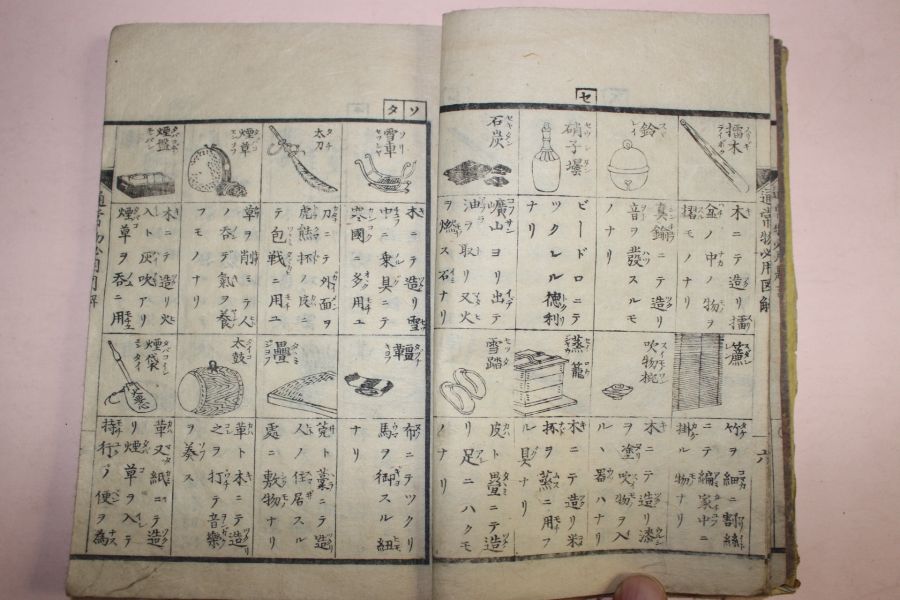 セ
擂木
木ニテ造リ擂
盆ノ中ノ物ヲ
摺モノナリ
鈴
真鍮ニテ造リ
音ヲ發スルモ
ノナリ
硝子壜
ビードロニテ
ツクレル徳利
ナリ
石炭
礦山ヨリ出テ
油ヲ取リ又火
ヲ燃ス石ナリ
簾
竹ヲ細ニ割絲
ニテ編家中ニ
掛ル物ナリ
吸物椀
木ニテ造リ漆
ヲ塗吸物ヲ入
ルヽ器ハナリ
蒸籠
木ニテ造リ米
抔ヲ蒸ニ用フ
ル具ナリ
雪踏
皮ト疊ニテ造
リ足ニハクモ
ノナリ
ソ
タ
雪車
木ニテ造リ雪
中ニ乗具ニテ
寒國ニ多用ユ
太刀
刀ニテ外面ヲ
虎熊抔ノ皮ニ
テ包戦ニ用ユ
煙草
草ヲ削ミテ人
ノ呑テ氣ヲ養
フモノナリ
煙盤
木ニテ造リ火
入ト灰吹アリ
煙草ヲ呑ニ用
布ニテツクリ
馬ヲ御スル紐
ナリ
疊
莞ト藁ニテ造
人ノ住居スル
處ニ敷物ナリ
太鼓
革ト木ニテ造リ
之ヲ打テ音樂
ヲ奏ス
煙袋
革又紙ニテ造
リ煙草ヲ入テ
持行ノ便ヲ為